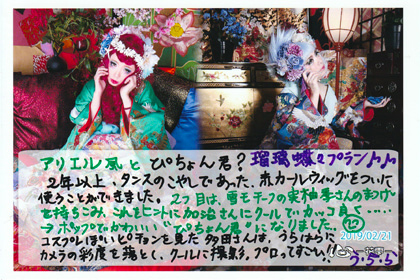 アリエル風と ぴちょん君？瑠璃蝶々プラン♪♪
2年以上、タンスのこやしであった、赤カールウィッグをついに
使うことができました。2つ目は、雪モチーフの実柚季さんのまつげ
を持ちこみ、これをヒントに加治さんにクールでカッコ良く……
→ポップでかわいい "ぴちょん君"になりました。⑫
コスプレぽいピチョンを見た多田さんは、うちはらに
カメラの彩度を落とし、クールに撮影。プロってすごい！
2019/02/21